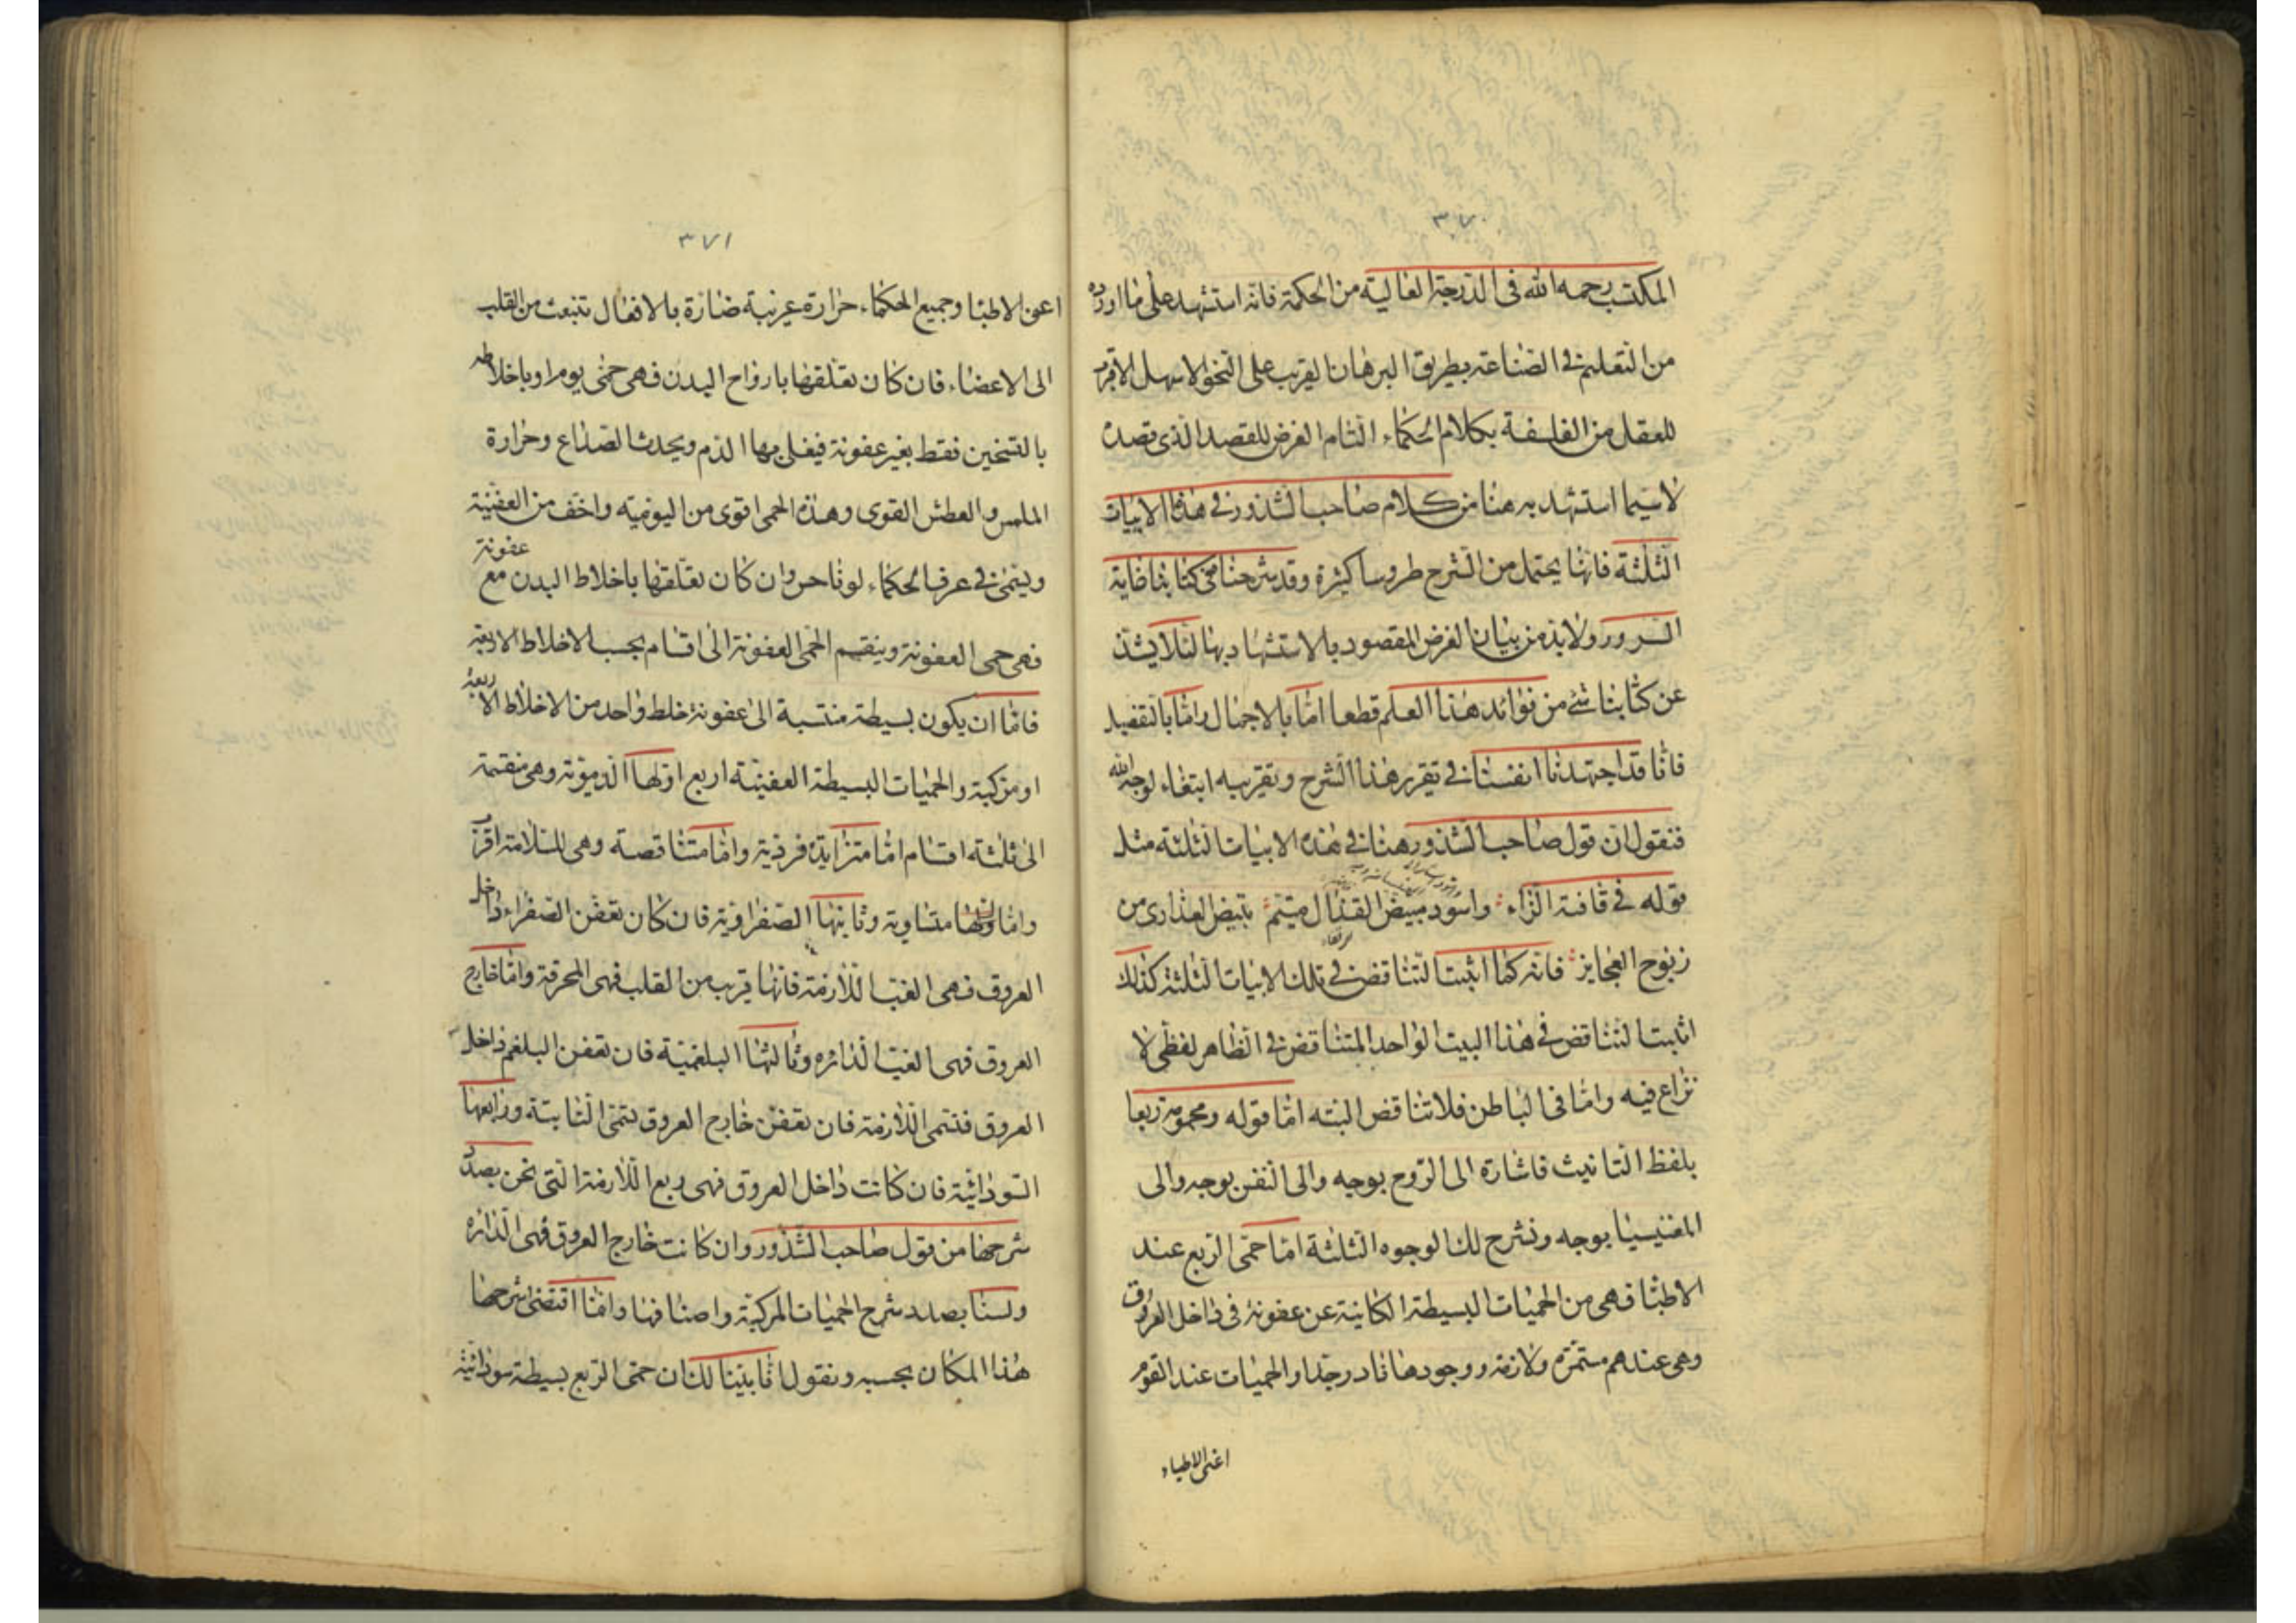 ٣٧٠
المكتسب رحمه الله في الدرجة العالية من الحكمة فانه استشهد على ما اورده
من التعليم في الصناعة بطريق البرهان القريب على النحو الاسهل الاقرب
للعقل من الفلسفة بكلام الحكماء التام الغرض للقصد الذى قصده
لاسيما استشهد به هنا من كلام صاحب الشذور في هذه الابيات
الثلثة فانها يحتمل من الشرح طروسا كثيرة وقد شرحنا في كتابنا غاية
السرور ولا بد من بيان الغرض المقصود بالاستشهاد بها لئلا يشذ
عن كتابنا شئ من فوائد هذا العلم قطعا اما بالاجمال واما بالتفصيل
فانا قد اجتهدنا انفسنا في تقرير هذا الشرح وتقريبه ابتغاء لوجه الله
فنقول ان قول صاحب الشذور هنا في هذه الابيات الثلثة مثل
قوله في قافية الزاء واسود مبيض القذال متيم بتبيض العذارى من
زنوج العجايز فانه كما اثبت التناقض في تلك الابيات الثلثة كذلك
اثبت التناقض في هذا البيت الواحد المتناقض في الظاهر لفظى لا
نزاع فيه واما في الباطن فلا تناقض البته اما قوله ومحمومة ربعا
بلفظ التانيث فاشارة الى الروح بوجه والى النفس بوجه والى
المغنيسيا بوجه ونشرح لك الوجوه الثلثة اما حمى الربع عند
الاطبا فهى من الحميات البسيطة الكاينة عن عفونة في داخل العروق
وهى عندهم مستمرة ولازمة ووجودها نادر جدا والحميات عند القوم
اعنى الاطباء
٣٧١
اعنى الاطبا وجميع الحكماء حرارة غريبة ضارة بالافعال تنبعث من القلب
الى الاعضاء فان كان تعلقها بارواح البدن فهى حمى يوم او باخلاطه
بالتسخين فقط بغير عفونة فيغلى بها الدم ويحدث الصداع وحرارة
الملمس والعطش القوى وهذه الحمى اقوى من اليومية واخف من العفنية
ويسمى في عرف الحكماء لوناخس وان كان تعلقها باخلاط البدن مع عفونة
فهى حمى العفونة وينقسم الحمى العفونة الى اقسام بحسب الاخلاط الاربعة
فاما ان يكون بسيطة منتسبة الى عفونة خلط واحد من الاخلاط الاربعة
او مركبة والحميات البسيطة العفينة اربع اولها الدموية وهى منقسمة
الى ثلثة اقسام اما متزايدة فردية واما متناقصة وهى للسلامة اقرب
واما متساوية وثانيها الصفراوية فان كان تعفن الصفراء داخل
العروق فهى الغب اللازمة فانها قريب من القلب فهى المحرقة واما خارج
العروق فهى الغب الدائره وثالثها البلغمية فان تعفن البلغم داخل
العروق فتسمى اللازمة فان تعفن خارج العروق تسمى النابتة ورابعها
السودائية فان كانت داخل العروق فهى ربع اللازمة التى نحن بصدد
شرحها من قول صاحب الشذور وان كانت خارج العروق فهى الدائره
ولسنا بصدد شرح الحميات المركبة واصنافها وانما اقتضى شرحها
هذا المكان بحسبه ونقول انا بينا لك ان حمى الربع بسيطة سودائية